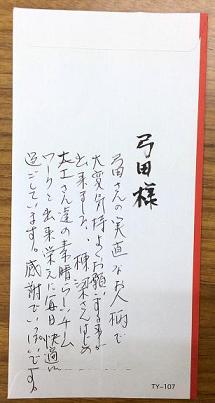 弓田様
弓田さんの実直なお人柄で
大変気持よくお願いする事が
出来ました、棟梁さんはじめ
大工さん達の素晴らしいチーム
ワークと出来栄えに毎日快適に
過ごしています。感謝でいっぱいです。
TY-107